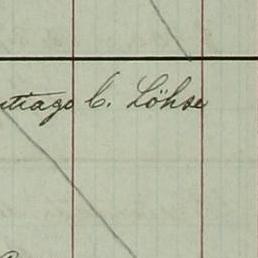 ntiago C. Löhse